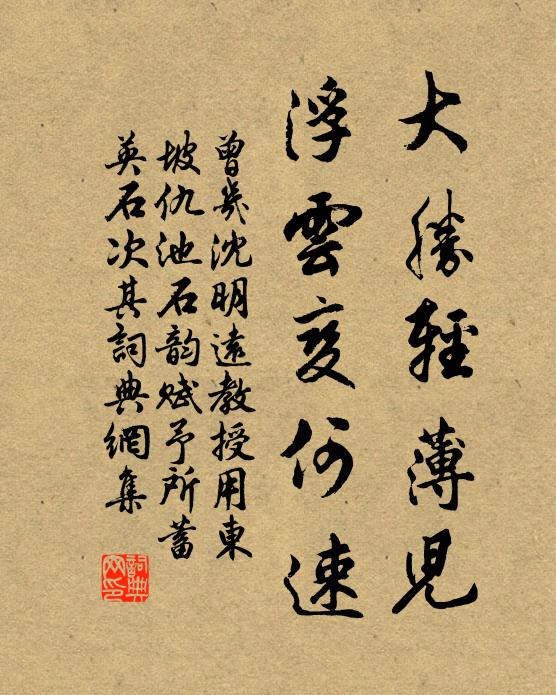 大勝輕薄児
浮雲变何速
曾幾沈明遠教授用東
坡仇池石韵赋予所蓄
英石次其詞典網集
詞典网印